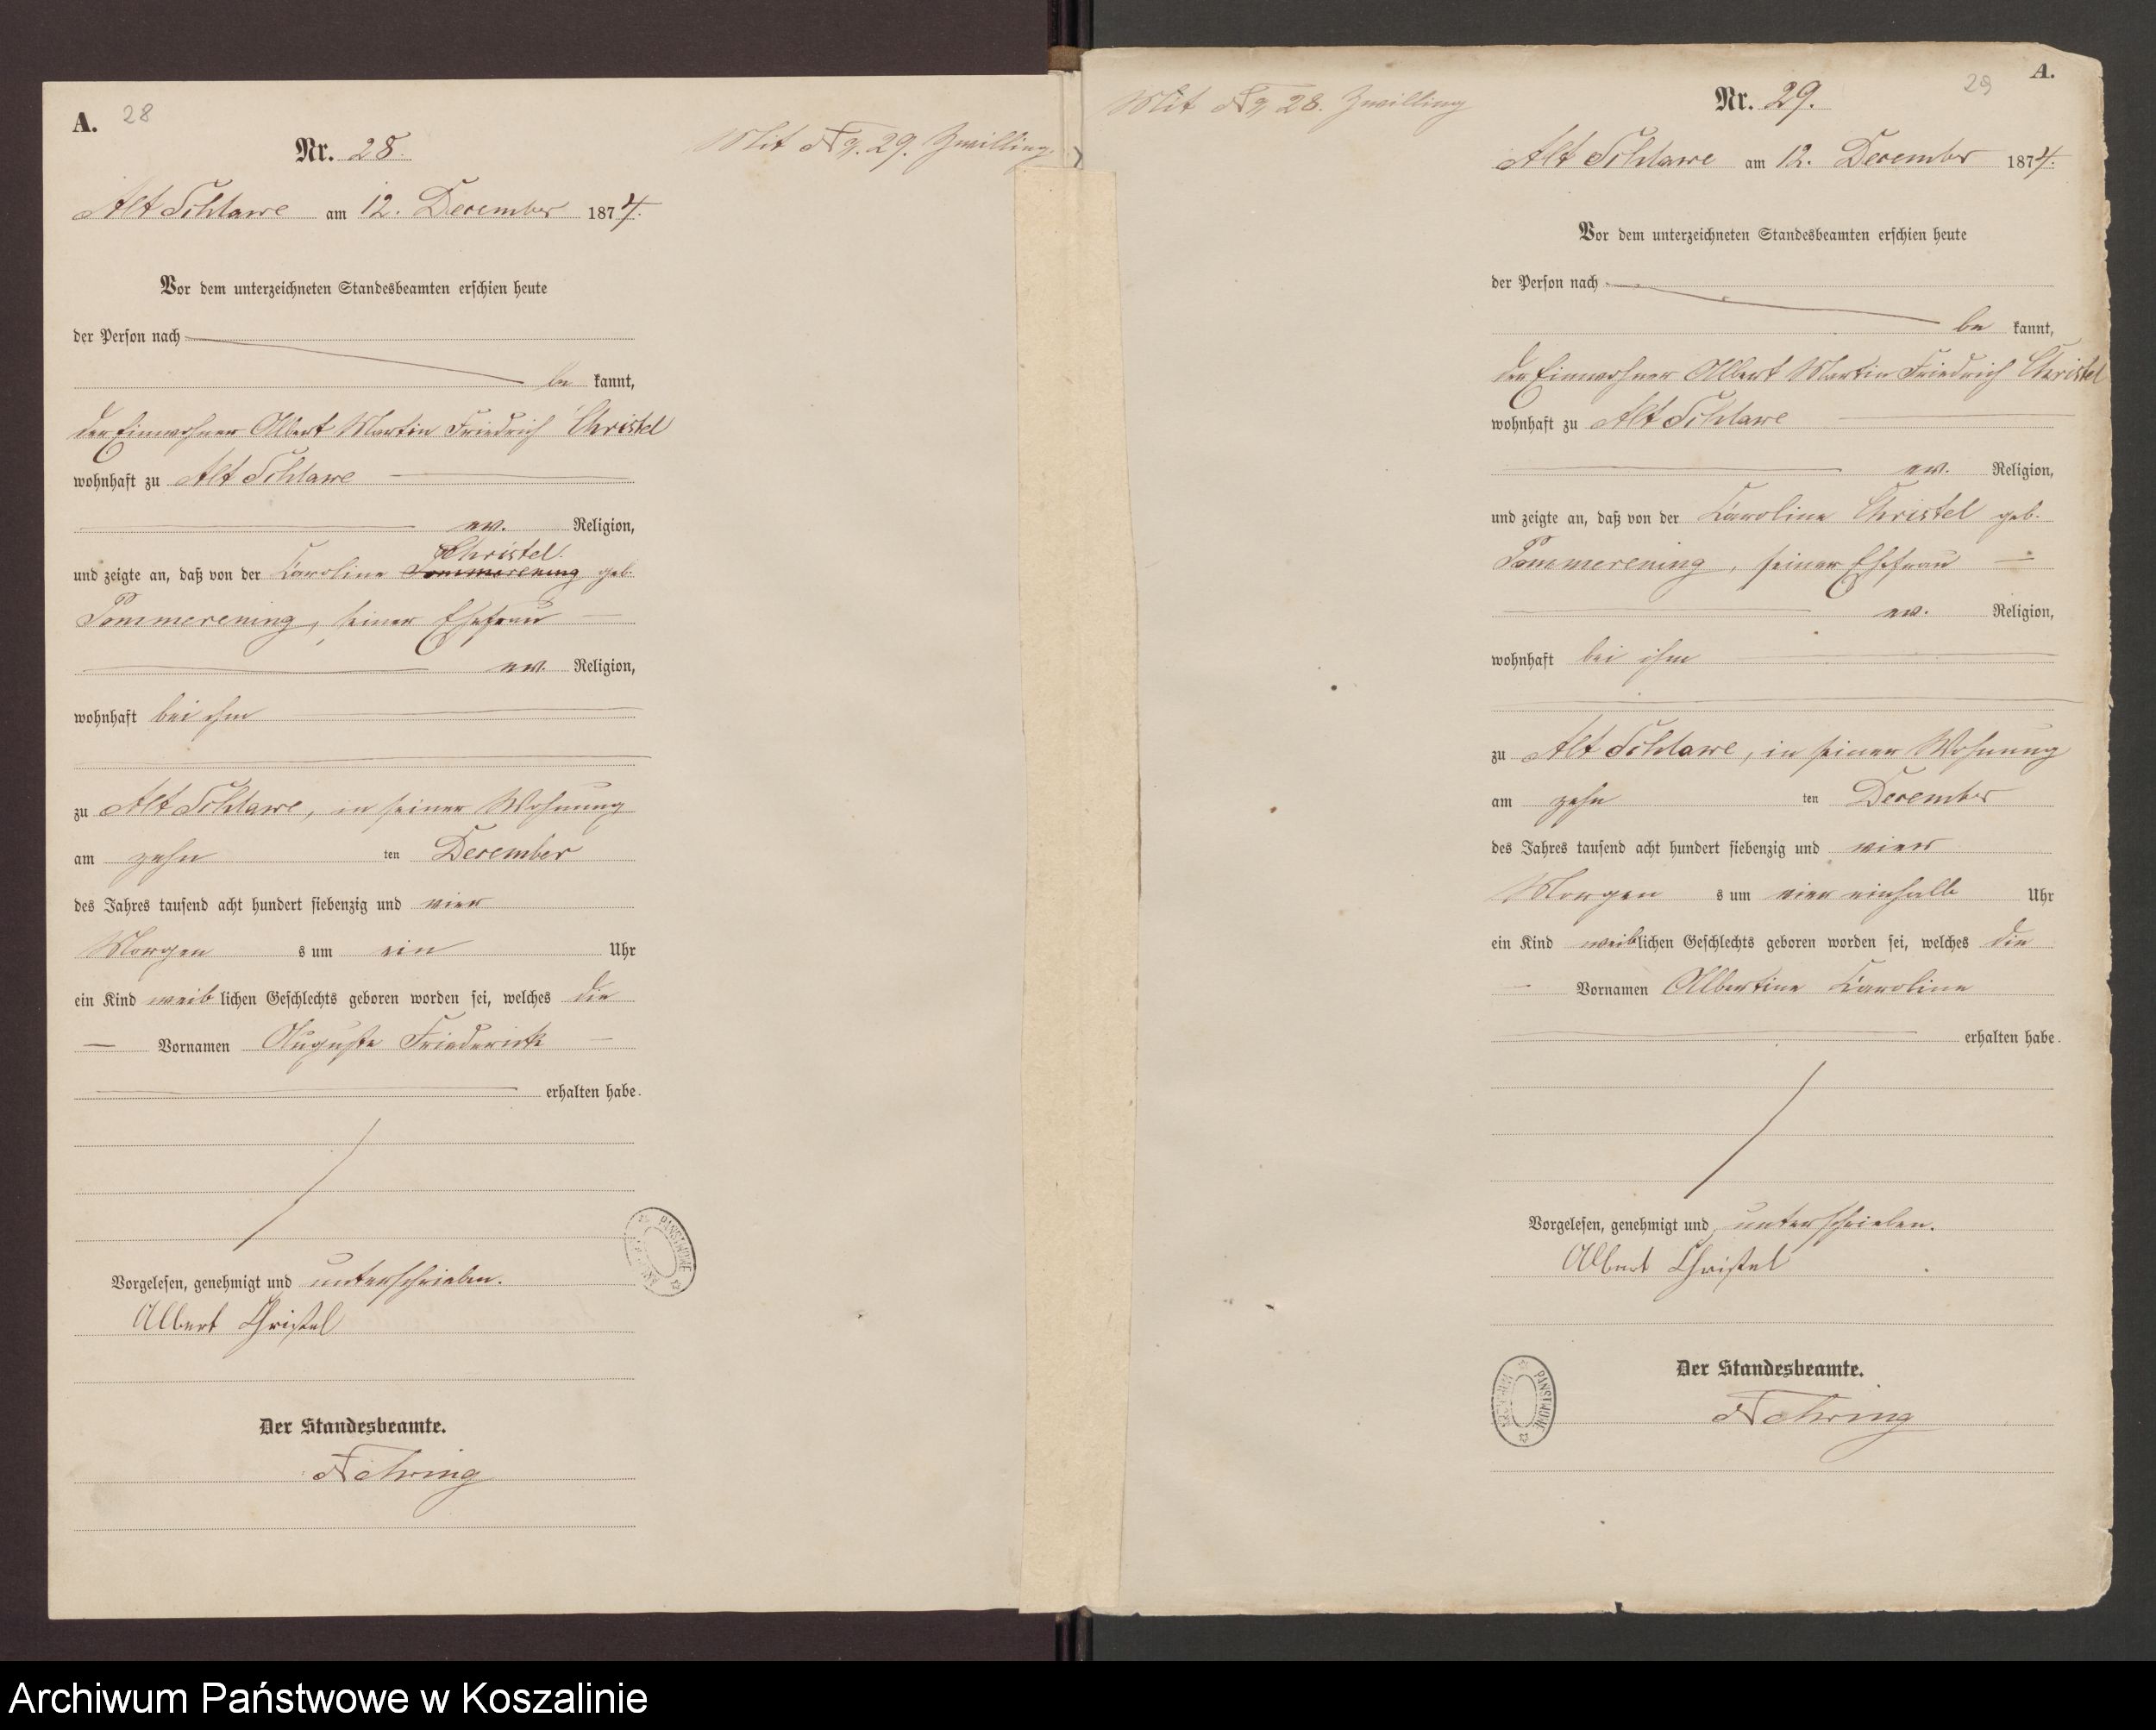 A. 28
Nr. 28.
Mit No. 29. Zwilling.
Alt Schlawe am 12. December 1874.
Vor dem unterzeichneten Standesbeamten erschien heute
der Person nach
be kannt,
der Einwohner Albert Martin Friedrich Christel
wohnhaft zu Alt Schlawe
ev. Religion,
Christel.
und zeigte an, daß von der Karoline Pommerening geb.
Pommerening, seiner Ehefrau
ev. Religion,
wohnhaft bei ihm
zu Alt Schlawe, in seiner Wohnung
am zehn ten December
des Jahres tausend acht hundert siebenzig und vier
Morgen s um ein Uhr
ein Kind weib lichen Geschlechts geboren worden sei, welches die
Vornamen Auguste Friederike
erhalten habe.
Vorgelesen, genehmigt und unterschrieben.
Albert Christel
Der Standesbeamte.
Nehring
Mit No. 28. Zwilling
29 A.
Nr. 29.
Alt Schlawe am 12. December 1874.
Vor dem unterzeichneten Standesbeamten erschien heute
der Person nach
be kannt,
der Einwohner Albert Martin Friedrich Christel
wohnhaft zu Alt Schlawe
ev. Religion,
und zeigte an, daß von der Karoline Christel geb.
Pommerening, seiner Ehefrau
ev. Religion,
wohnhaft bei ihm
zu Alt Schlawe, in seiner Wohnung
am zehn ten December
des Jahres tausend acht hundert siebenzig und vier
Morgen s um vier einhalb Uhr
ein Kind weiblichen Geschlechts geboren worden sei, welches die
Vornamen Albertine Karoline
erhalten habe.
Vorgelesen, genehmigt und unterschrieben.
Albert Christel
Der Standesbeamte.
Nehring
ARCHIWUM PAŃSTWOWE
Archiwum Państwowe w Koszalinie